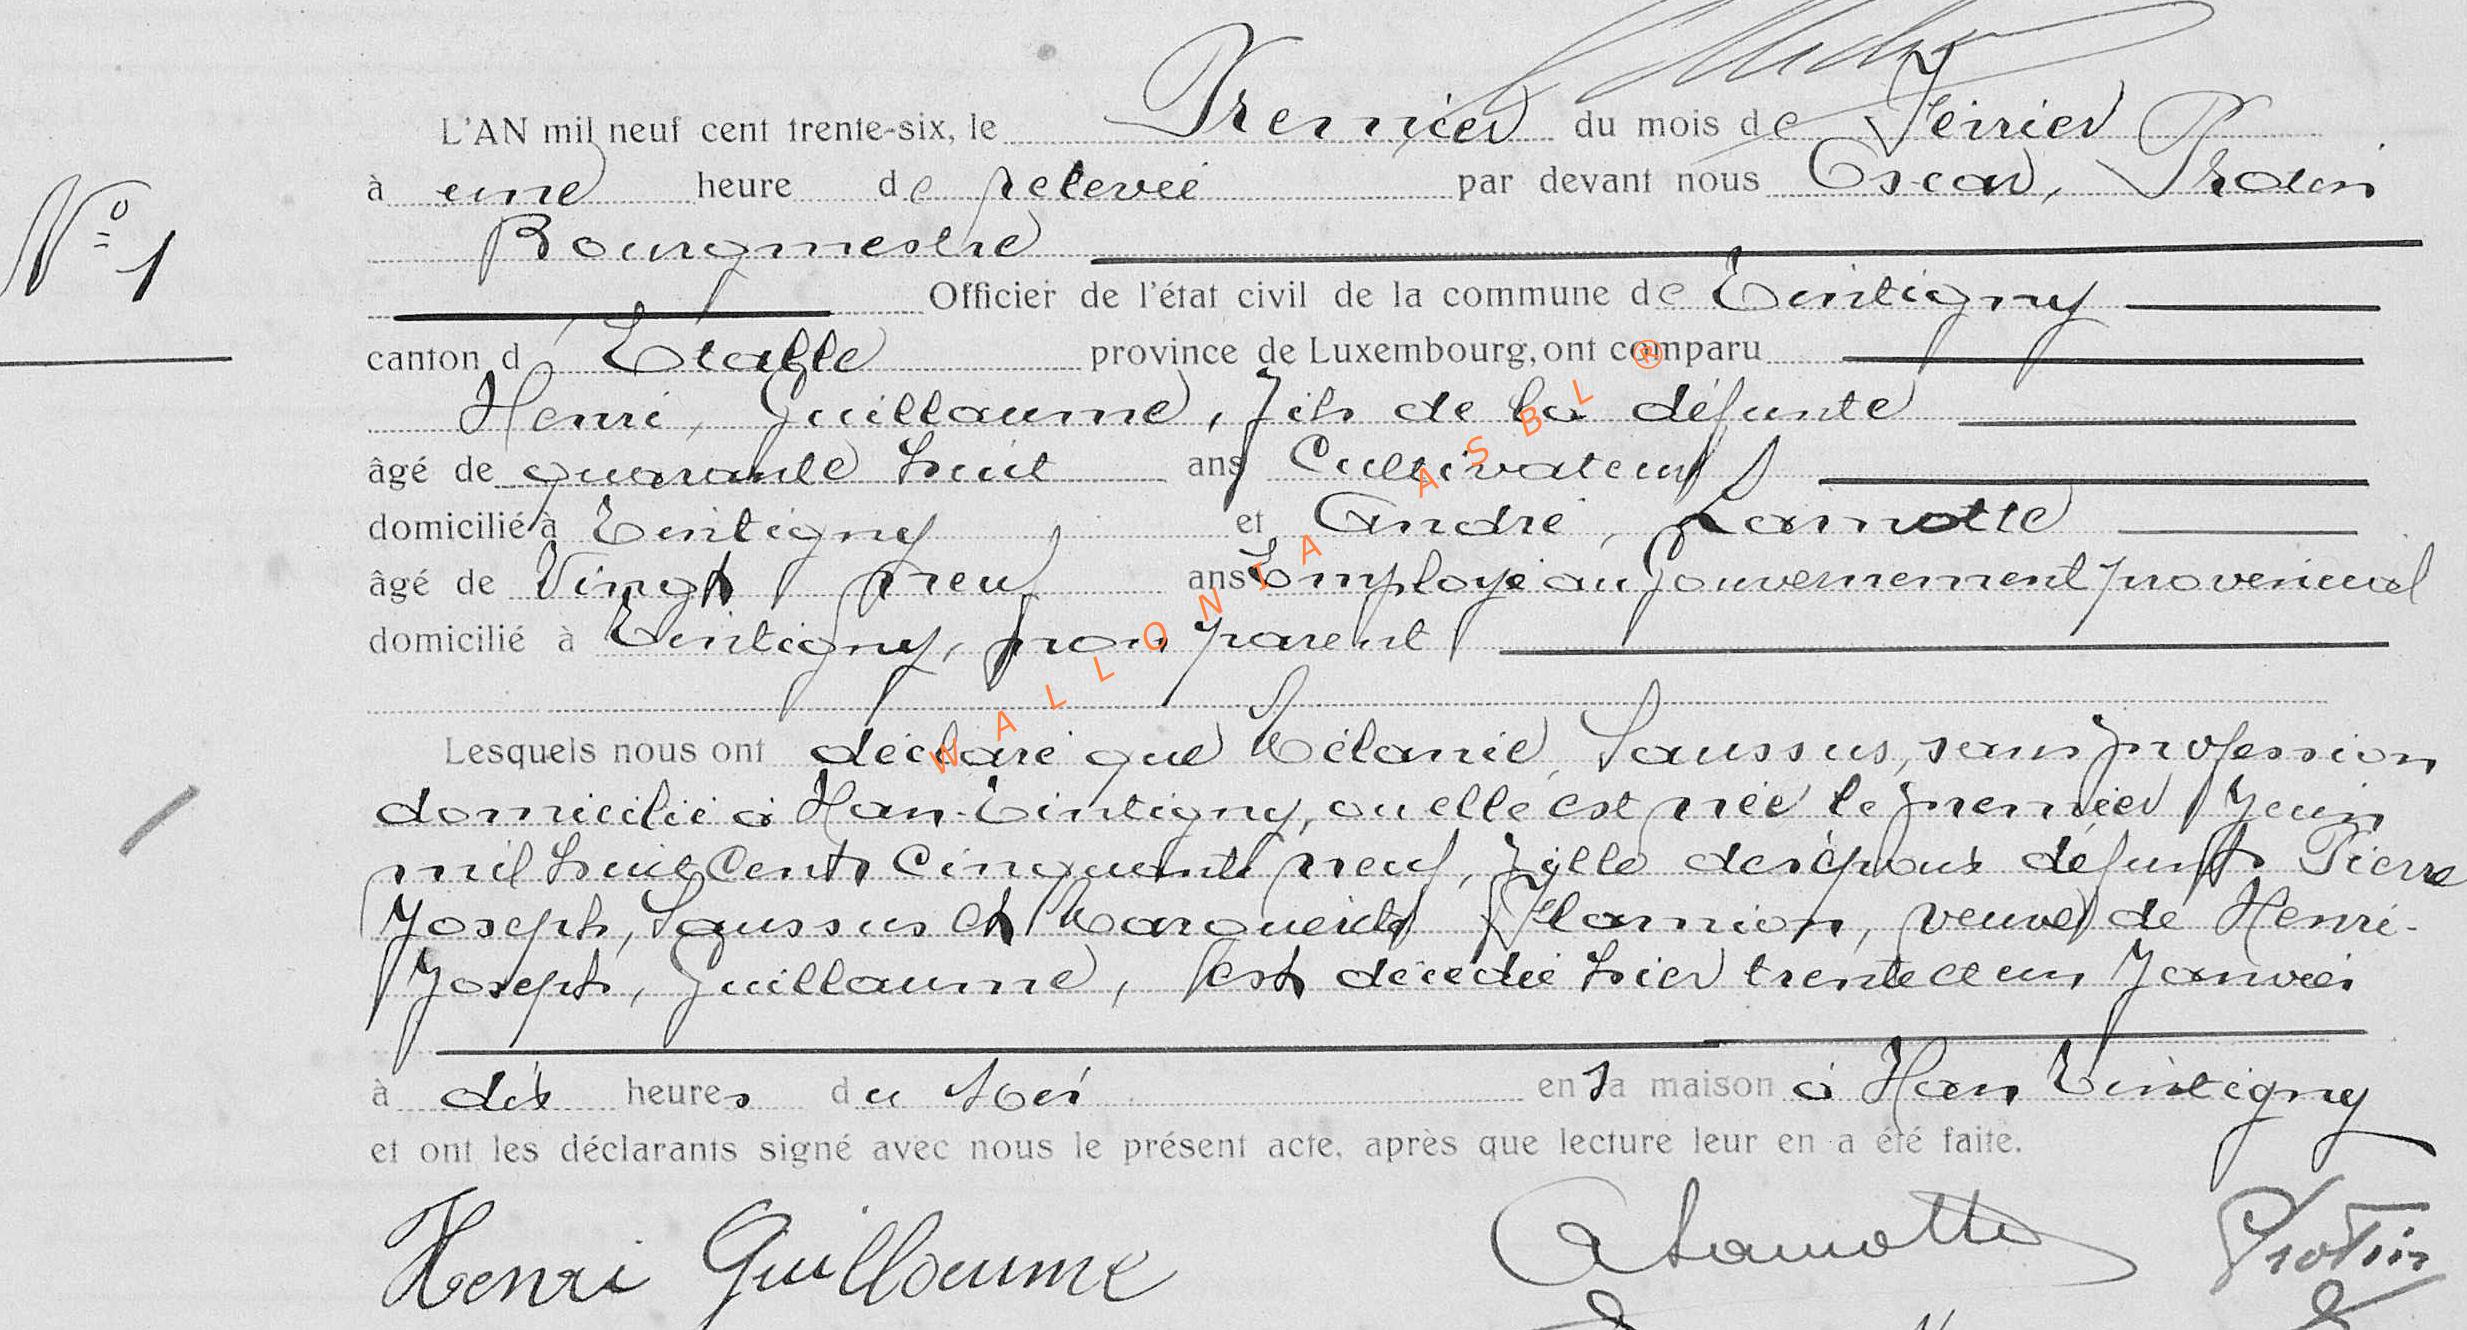 L'AN mil neuf cent trente-six, le Premier du mois de Février
à une heure de relevée par devant nous Oscar, Protin
Bourgmestre
N° 1
Officier de l'état civil de la commune de Tintigny
canton d Etalle province de Luxembourg, ont comparu
Henri, Guillaume, fils de la défunte
âgé de quarante huit ans Cultivateur
domicilié à Tintigny et André, Lamotte
âgé de Vingt neuf ans Employé au Gouvernement provincial
domicilié à Tintigny, non parent
WALLONIA ASBL ®
Lesquels nous ont déclaré que Mélanie, Saussus, sans profession
domicilié à Han-Tintigny, ou elle est née le premier Juin
mil huit cent cinquante neuf, fille des époux défunts Pierre
Joseph, Saussus et Marguerite Flamion, veuve de Henri-
Joseph, Guillaume, est décédée hier trente et un Janvier
à dix heures du soir en sa maison à Han Tintigny
et ont les déclarants signé avec nous le présent acte, après que lecture leur en a été faite.
Henri Guillaume A Lamotte Protin